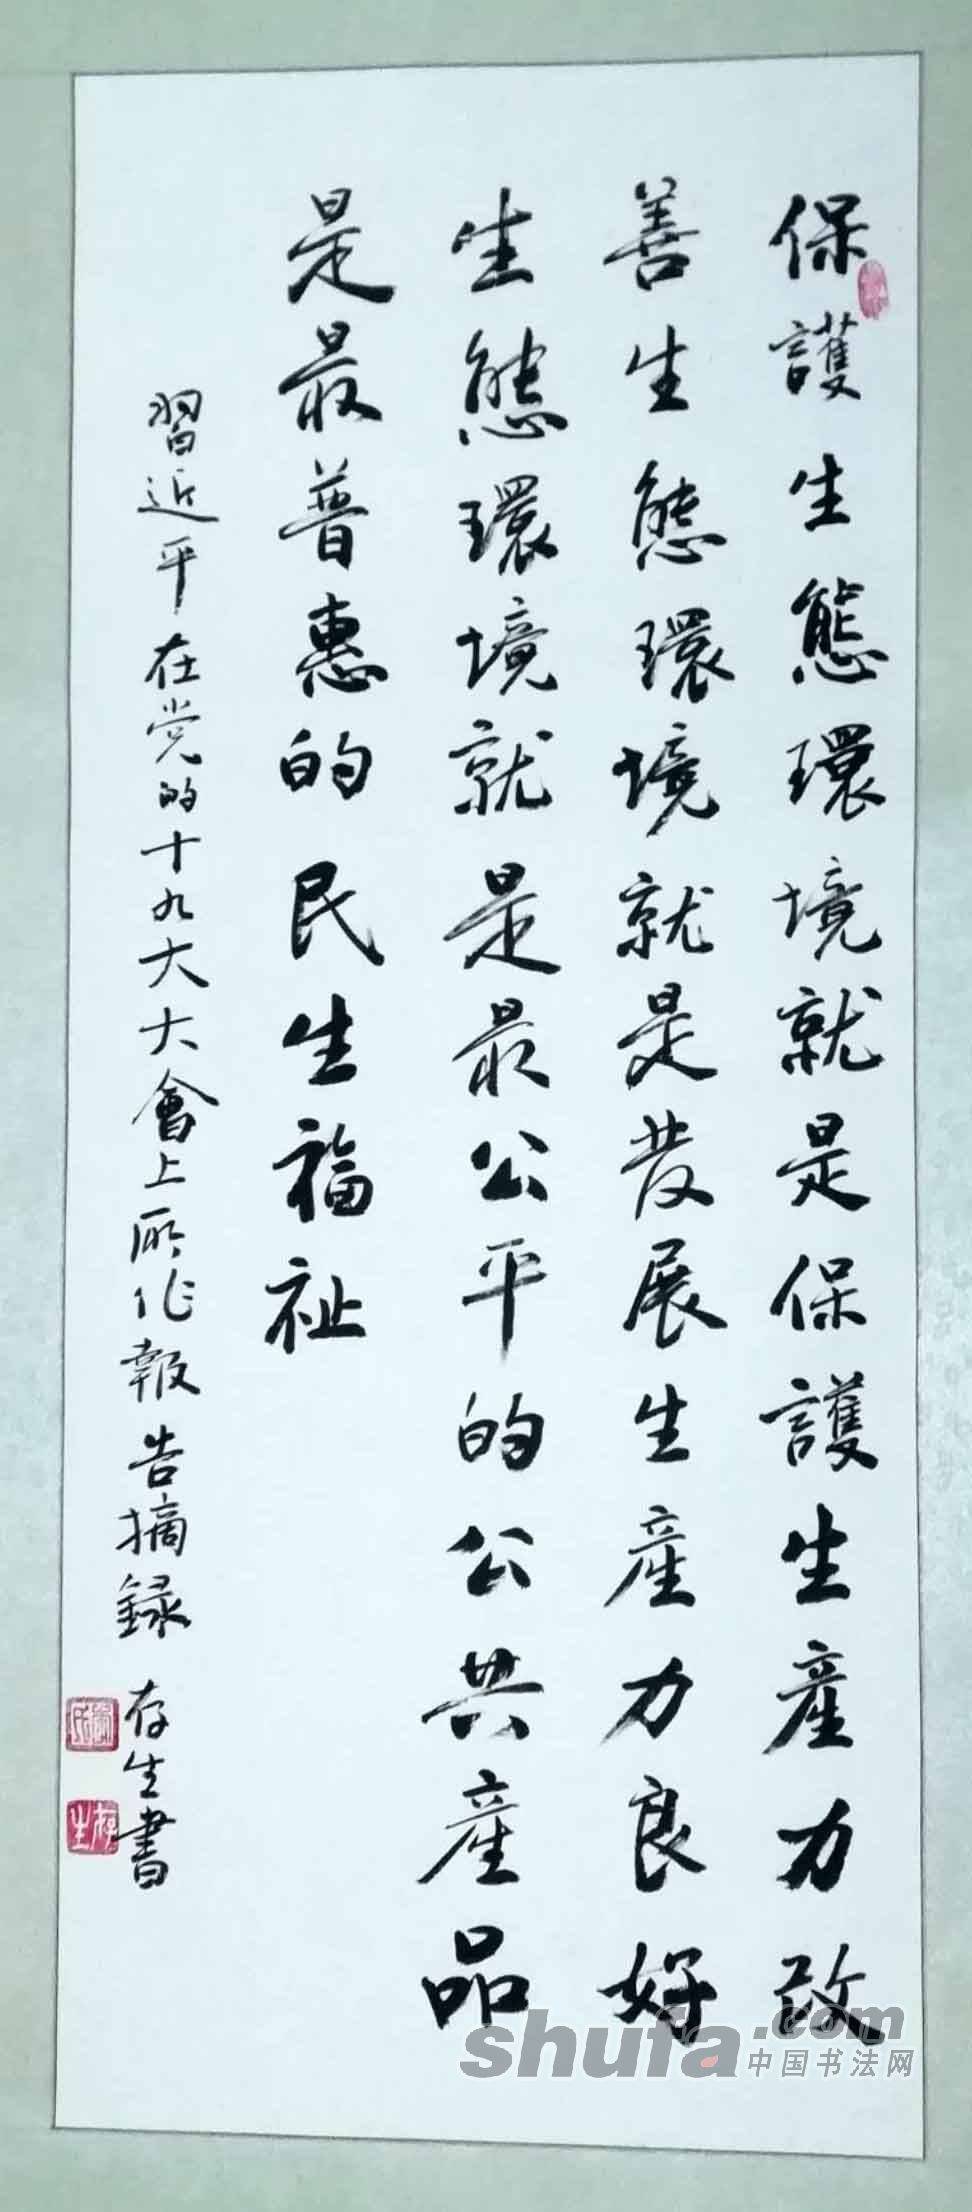 保護生態環境就是保護生産力改
善生態環境就是发展生産力良好
生態環境就是最公平的公共産品
是最普惠的民生福祉
習近平在党的十九大大會上所作報告摘録
存生書
存生
shufa.com
中国书法网